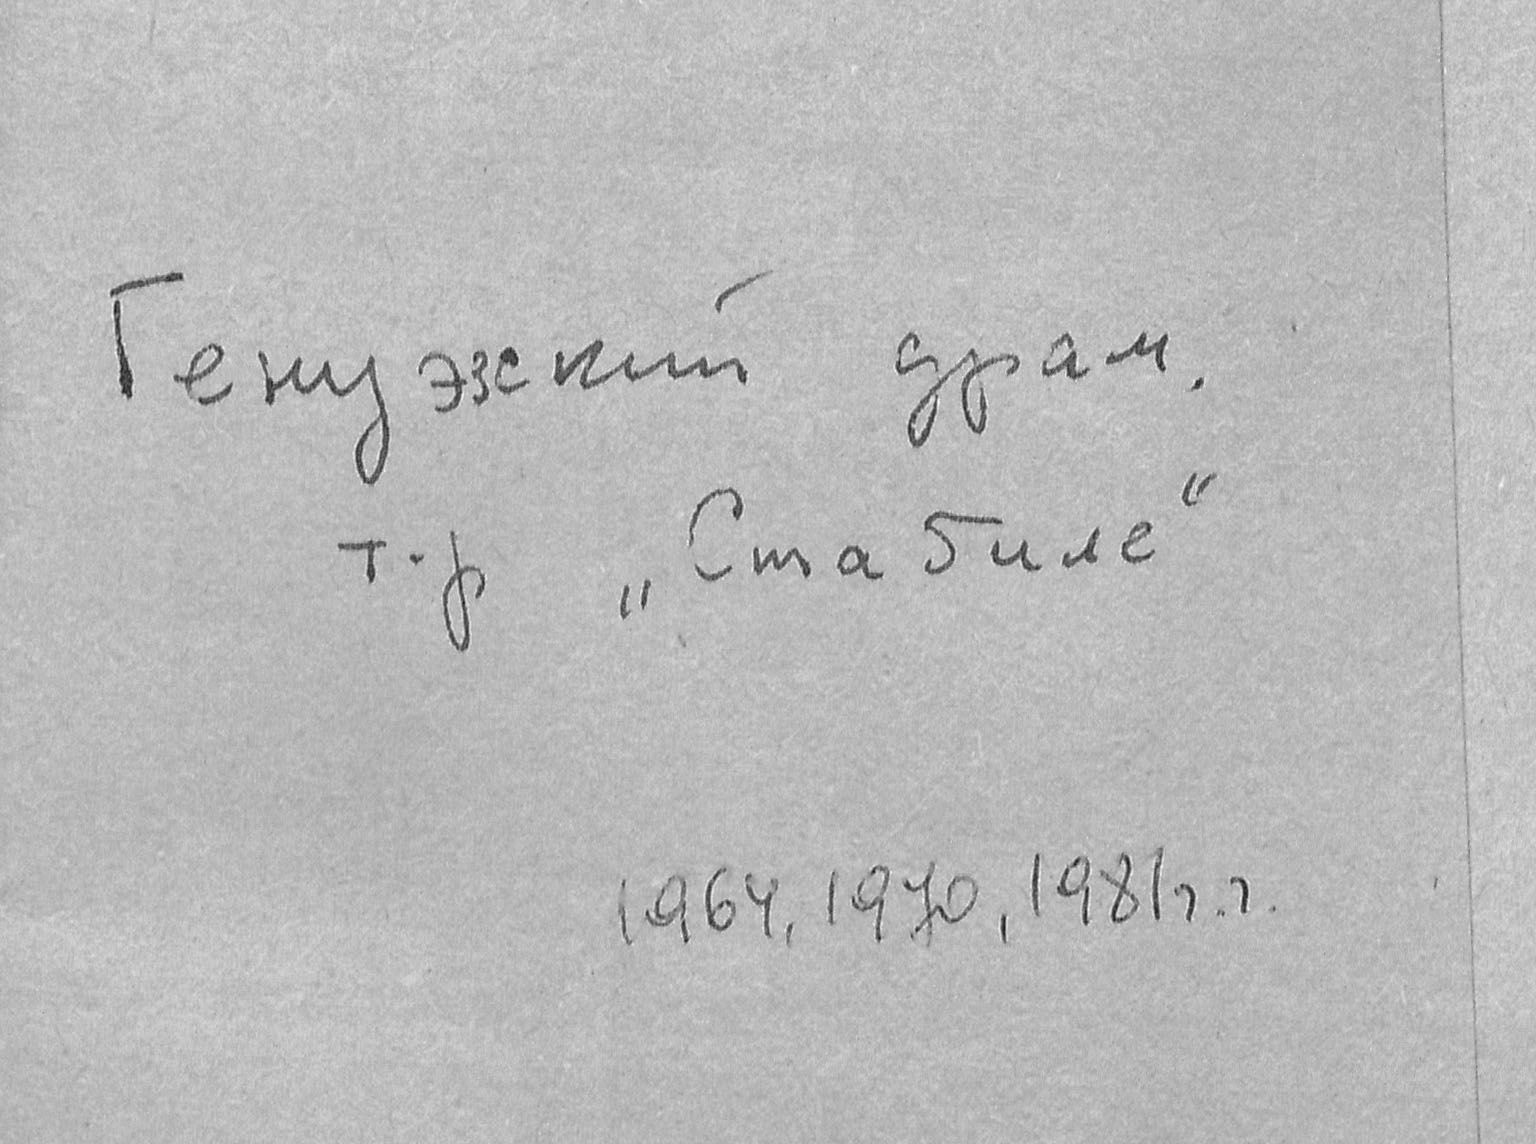 Генуэзский драм.
т-р „Стабиле“
1964, 1970, 1981г.г.